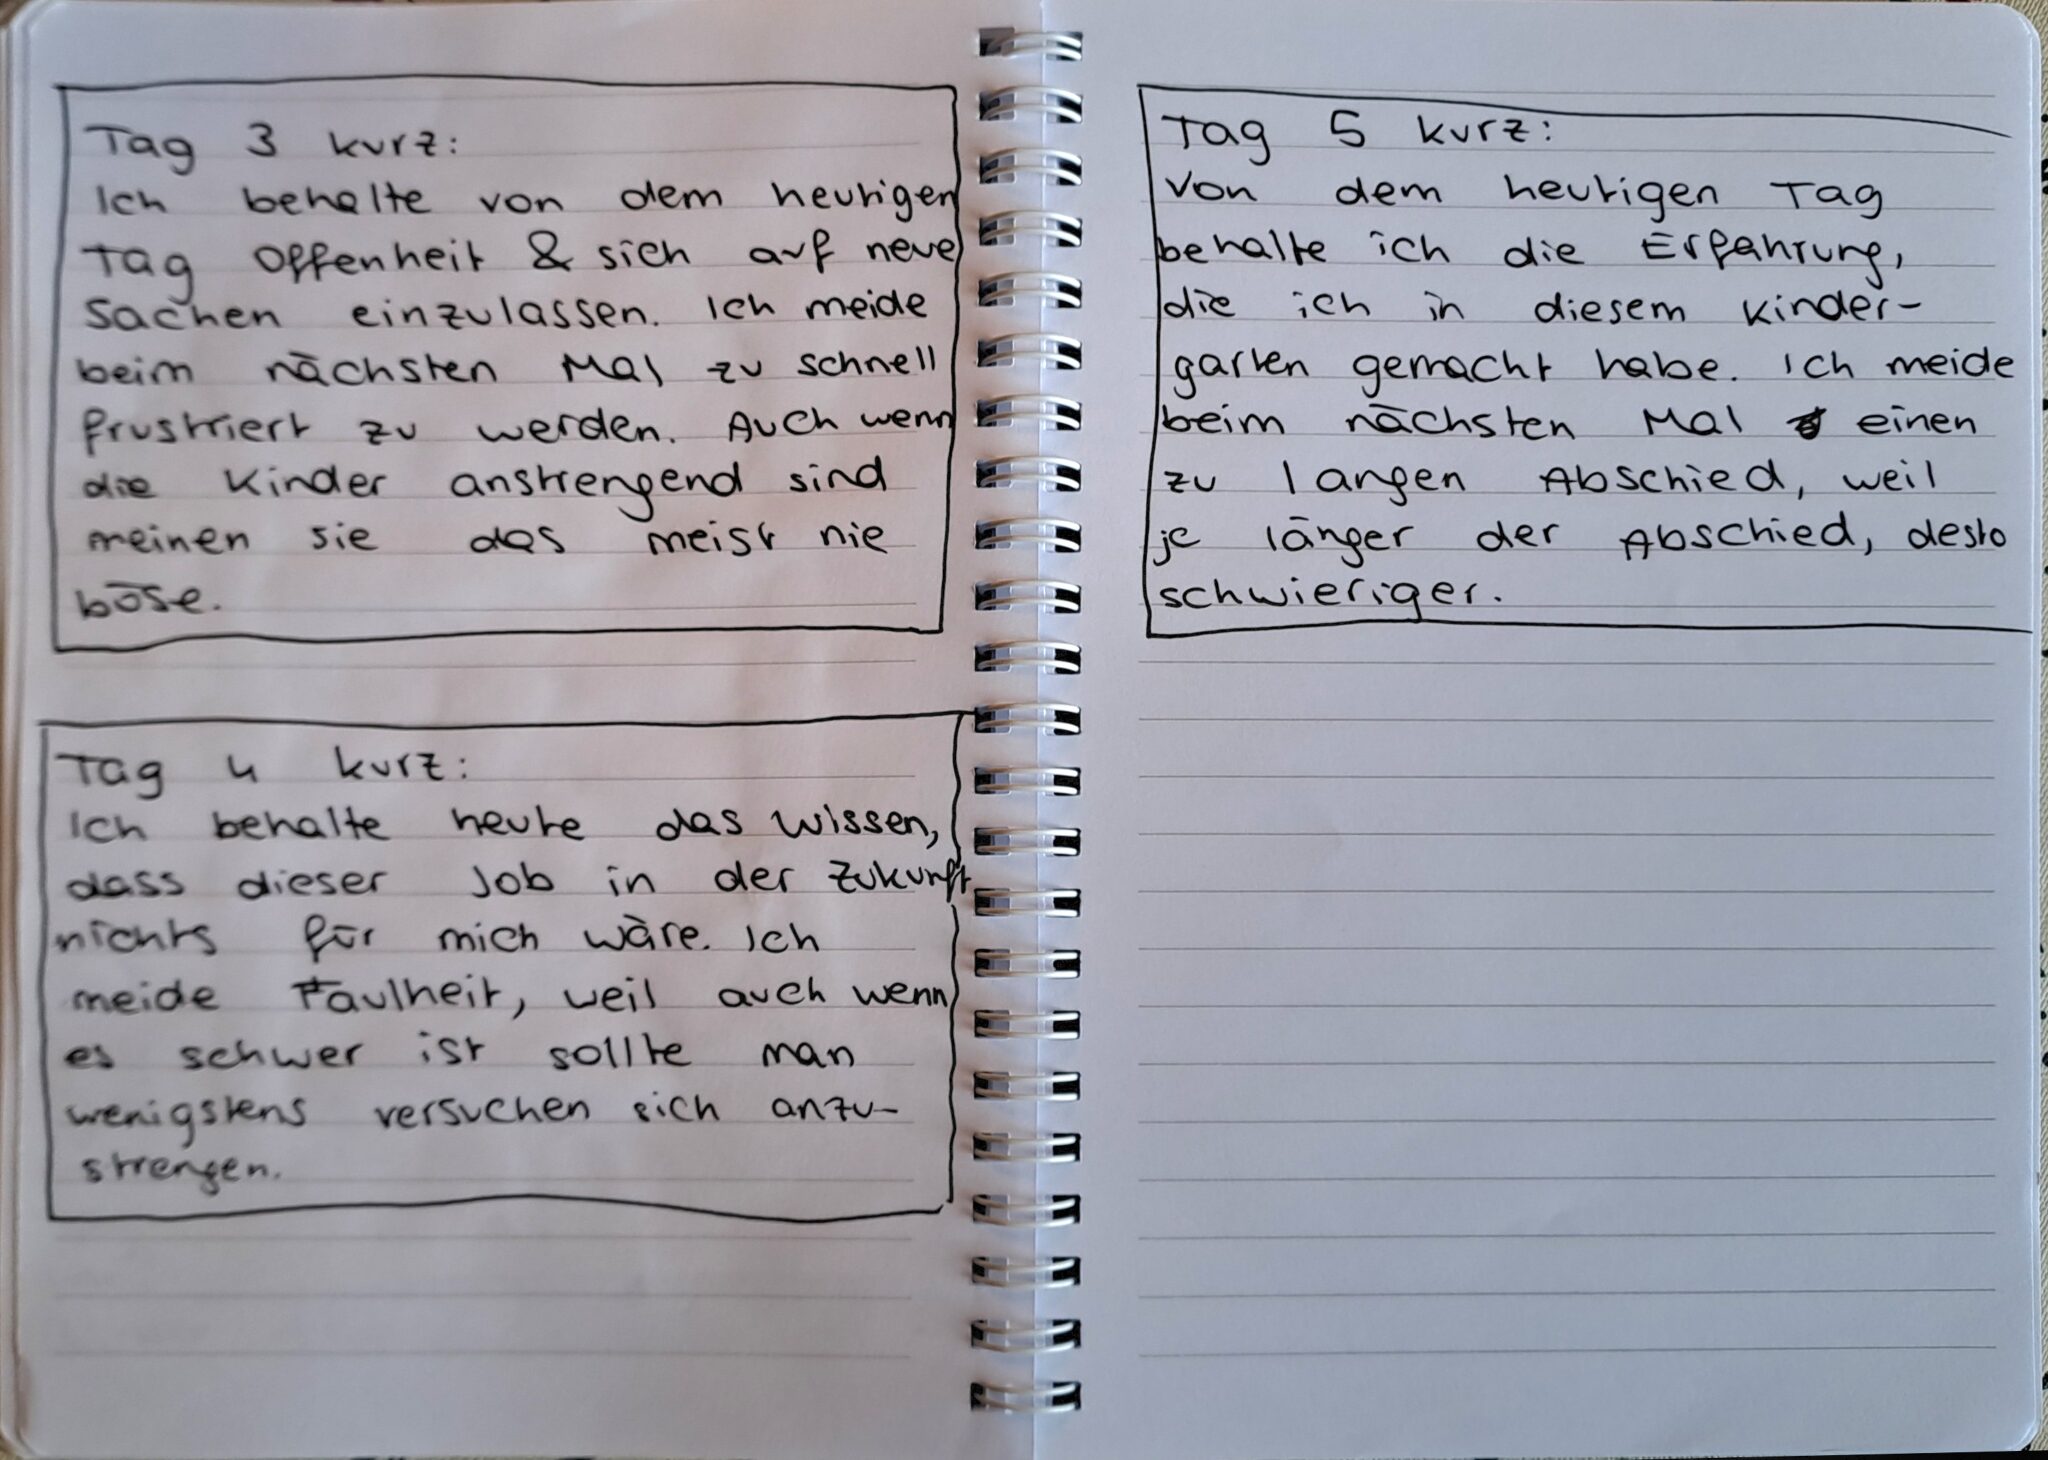 Tag 3 kurz:
Ich behalte von dem heutigen
Tag Offenheit & sich auf neue
Sachen einzulassen. Ich meide
beim nächsten Mal zu schnell
frustriert zu werden. Auch wenn
die Kinder anstrengend sind
meinen sie das meist nie
böse.
Tag 4 kurz:
Ich behalte heute das Wissen,
dass dieser Job in der Zukunft
nichts für mich wäre. Ich
meide Faulheit, weil auch wenn
es schwer ist sollte man
wenigstens versuchen sich anzu-
strengen.
Tag 5 kurz:
Von dem heutigen Tag
behalte ich die Erfahrung,
die ich in diesem Kinder-
garten gemacht habe. Ich meide
beim nächsten Mal einen
zu langen Abschied, weil
je länger der Abschied, desto
schwieriger.